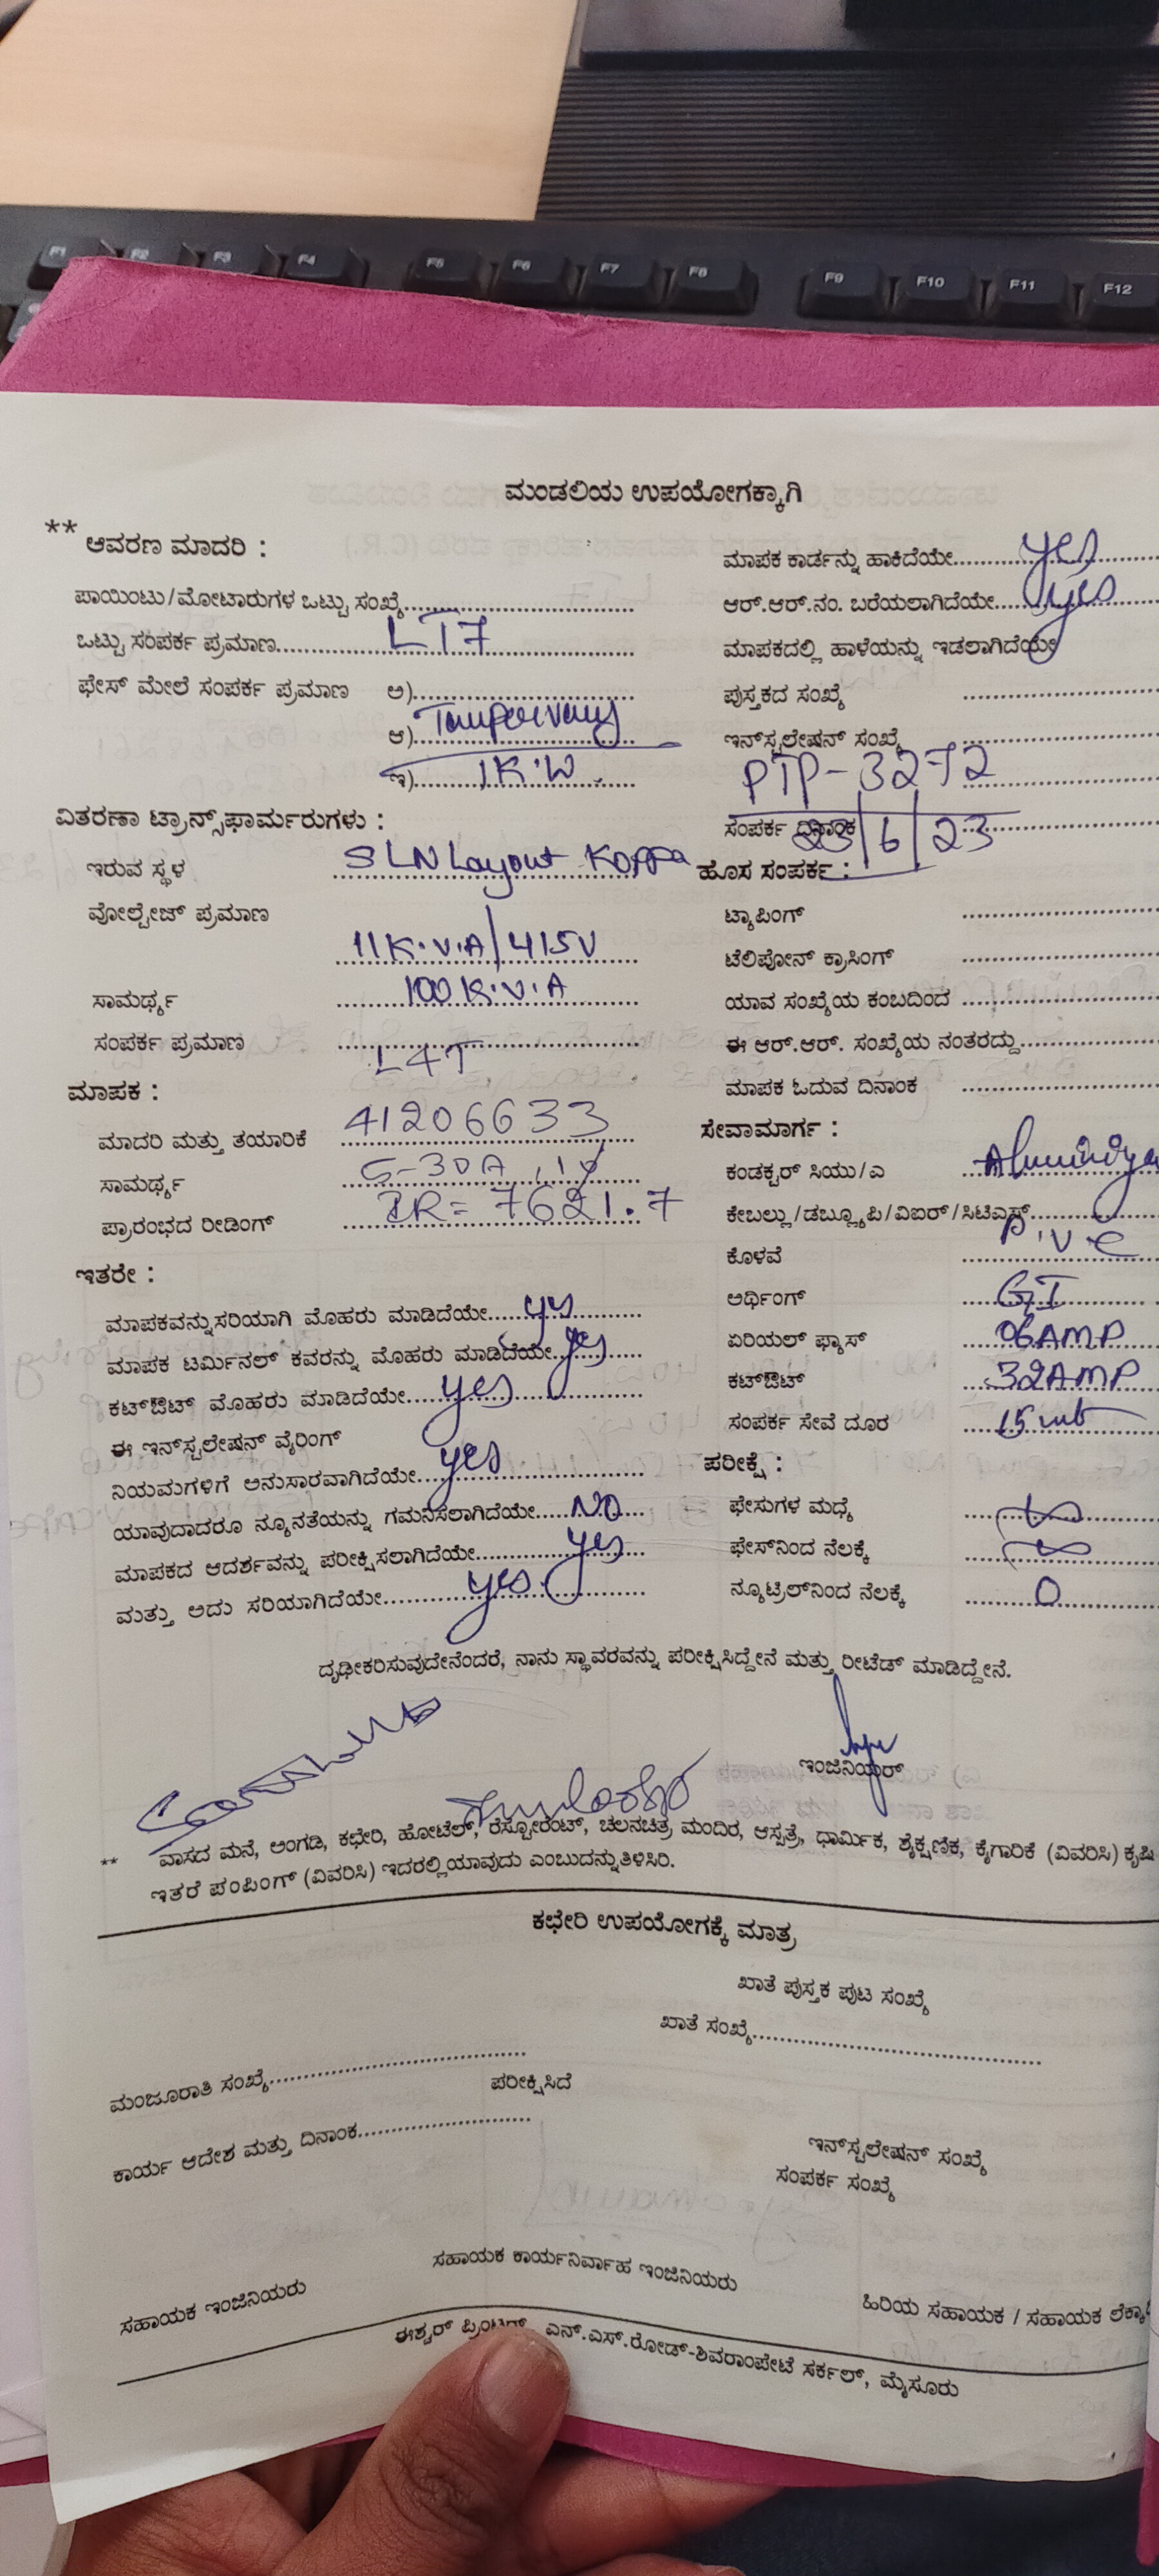 F1 F2 F3 F4 F5 F6 F7 F8 F9 F10 F11 F12
ಮಂಡಲಿಯ ಉಪಯೋಗಕ್ಕಾಗಿ
** ಆವರಣ ಮಾದರಿ :
ಪಾಯಿಂಟು/ಮೋಟಾರುಗಳ ಒಟ್ಟು ಸಂಖ್ಯೆ
ಒಟ್ಟು ಸಂಪರ್ಕ ಪ್ರಮಾಣ LT7
ಫೇಸ್ ಮೇಲೆ ಸಂಪರ್ಕ ಪ್ರಮಾಣ ಅ)
ಆ)
ಇ) 1K.W
ವಿತರಣಾ ಟ್ರಾನ್ಸ್‌ಫಾರ್ಮರುಗಳು :
ಇರುವ ಸ್ಥಳ SLN Layout Koppa
ವೋಲ್ಟೇಜ್ ಪ್ರಮಾಣ
11K.V.A/415V
ಸಾಮರ್ಥ್ಯ 100 K.V.A
ಸಂಪರ್ಕ ಪ್ರಮಾಣ
L&T
ಮಾಪಕ :
ಮಾದರಿ ಮತ್ತು ತಯಾರಿಕೆ 41206633
ಸಾಮರ್ಥ್ಯ 5-30A
ಪ್ರಾರಂಭದ ರೀಡಿಂಗ್ IR= 7621.7
ಇತರೇ :
ಮಾಪಕವನ್ನು ಸರಿಯಾಗಿ ಮೊಹರು ಮಾಡಿದೆಯೇ yes
ಮಾಪಕ ಟರ್ಮಿನಲ್ ಕವರನ್ನು ಮೊಹರು ಮಾಡಿದೆಯೇ yes
ಕಟ್‌ಔಟ್ ಮೊಹರು ಮಾಡಿದೆಯೇ yes
ಈ ಇನ್‌ಸ್ಟಲೇಷನ್ ವೈರಿಂಗ್
ನಿಯಮಗಳಿಗೆ ಅನುಸಾರವಾಗಿದೆಯೇ yes
ಯಾವುದಾದರೂ ನ್ಯೂನತೆಯನ್ನು ಗಮನಿಸಲಾಗಿದೆಯೇ NO
ಮಾಪಕದ ಆದರ್ಶವನ್ನು ಪರೀಕ್ಷಿಸಲಾಗಿದೆಯೇ yes
ಮತ್ತು ಅದು ಸರಿಯಾಗಿದೆಯೇ yes
ಮಾಪಕ ಕಾರ್ಡನ್ನು ಹಾಕಿದೆಯೇ yes
ಆರ್.ಆರ್.ನಂ. ಬರೆಯಲಾಗಿದೆಯೇ yes
ಮಾಪಕದಲ್ಲಿ ಹಾಳೆಯನ್ನು ಇಡಲಾಗಿದೆಯೇ
ಪುಸ್ತಕದ ಸಂಖ್ಯೆ
ಇನ್‌ಸ್ಟಲೇಷನ್ ಸಂಖ್ಯೆ
PTP-3272
ಸಂಪರ್ಕ ದಿನಾಂಕ 23/6/23
ಹೊಸ ಸಂಪರ್ಕ :
ಟ್ಯಾಪಿಂಗ್
ಟೆಲಿಪೋನ್ ಕ್ರಾಸಿಂಗ್
ಯಾವ ಸಂಖ್ಯೆಯ ಕಂಬದಿಂದ
ಈ ಆರ್.ಆರ್. ಸಂಖ್ಯೆಯ ನಂತರದ್ದು
ಮಾಪಕ ಓದುವ ದಿನಾಂಕ
ಸೇವಾಮಾರ್ಗ :
ಕಂಡಕ್ಟರ್ ಸಿಯು/ಎ
ಕೇಬಲ್ಲು/ಡಬ್ಲ್ಯೂಪಿ/ವಿಐರ್/ಸಿಟಿಎಸ್
ಕೊಳವೆ P.V.C
ಅರ್ಥಿಂಗ್ GI
ಏರಿಯಲ್ ಫ್ಯೂಸ್ 06AMP
ಕಟ್‌ಔಟ್ 32AMP
ಸಂಪರ್ಕ ಸೇವೆ ದೂರ 15 mt
ಪರೀಕ್ಷೆ :
ಫೇಸುಗಳ ಮಧ್ಯೆ ∞
ಫೇಸ್‌ನಿಂದ ನೆಲಕ್ಕೆ ∞
ನ್ಯೂಟ್ರಲ್‌ನಿಂದ ನೆಲಕ್ಕೆ 0
ದೃಢೀಕರಿಸುವುದೇನೆಂದರೆ, ನಾನು ಸ್ಥಾವರವನ್ನು ಪರೀಕ್ಷಿಸಿದ್ದೇನೆ ಮತ್ತು ರೀಟೆಡ್ ಮಾಡಿದ್ದೇನೆ.
ಇಂಜಿನಿಯರ್
** ವಾಸದ ಮನೆ, ಅಂಗಡಿ, ಕಛೇರಿ, ಹೋಟೆಲ್, ರೆಸ್ಟೋರೆಂಟ್, ಚಲನಚಿತ್ರ ಮಂದಿರ, ಆಸ್ಪತ್ರೆ, ಧಾರ್ಮಿಕ, ಶೈಕ್ಷಣಿಕ, ಕೈಗಾರಿಕೆ (ವಿವರಿಸಿ) ಕೃಷಿ
ಇತರೆ ಪಂಪಿಂಗ್ (ವಿವರಿಸಿ) ಇದರಲ್ಲಿ ಯಾವುದು ಎಂಬುದನ್ನು ತಿಳಿಸಿರಿ.
ಕಛೇರಿ ಉಪಯೋಗಕ್ಕೆ ಮಾತ್ರ
ಖಾತೆ ಪುಸ್ತಕ ಪುಟ ಸಂಖ್ಯೆ
ಖಾತೆ ಸಂಖ್ಯೆ
ಮಂಜೂರಾತಿ ಸಂಖ್ಯೆ
ಪರೀಕ್ಷಿಸಿದೆ
ಕಾರ್ಯ ಆದೇಶ ಮತ್ತು ದಿನಾಂಕ
ಇನ್‌ಸ್ಟಲೇಷನ್ ಸಂಖ್ಯೆ
ಸಂಪರ್ಕ ಸಂಖ್ಯೆ
ಸಹಾಯಕ ಇಂಜಿನಿಯರು ಸಹಾಯಕ ಕಾರ್ಯನಿರ್ವಾಹ ಇಂಜಿನಿಯರು ಹಿರಿಯ ಸಹಾಯಕ / ಸಹಾಯಕ
ಈಶ್ವರ್ ಪ್ರಿಂಟರ್ಸ್, ಎನ್.ಎಸ್.ರೋಡ್-ಶಿವರಾಂಪೇಟೆ ಸರ್ಕಲ್, ಮೈಸೂರು